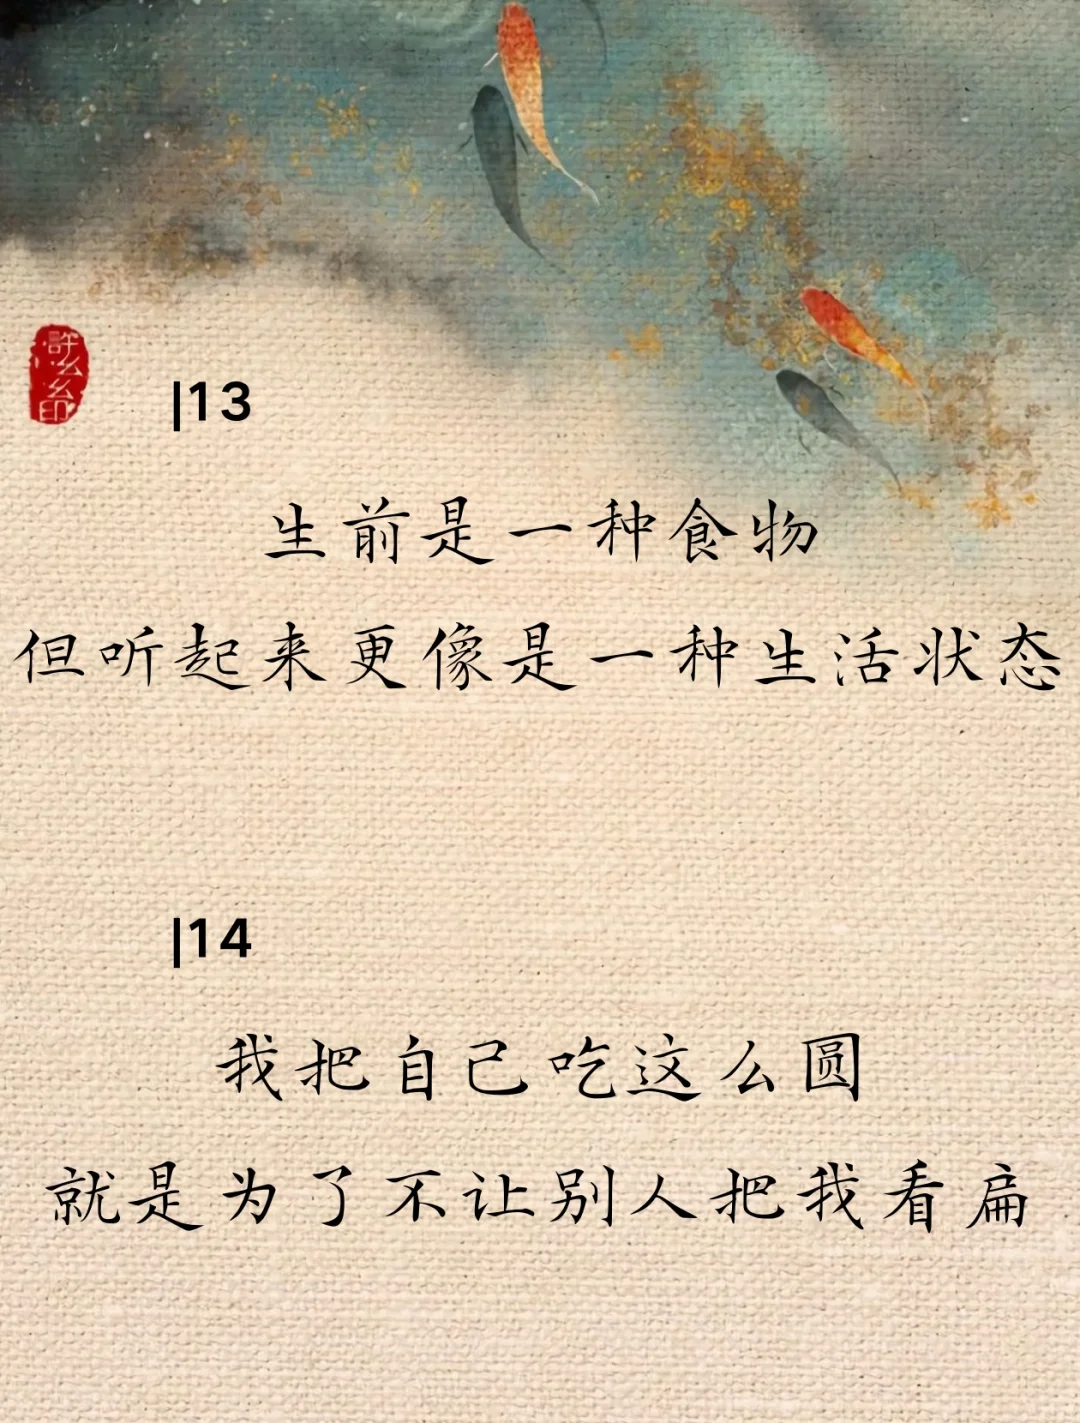 許么幺印
|13
生前是一种食物
但听起来更像是一种生活状态
|14
我把自己吃这么圆
就是为了不让别人把我看扁